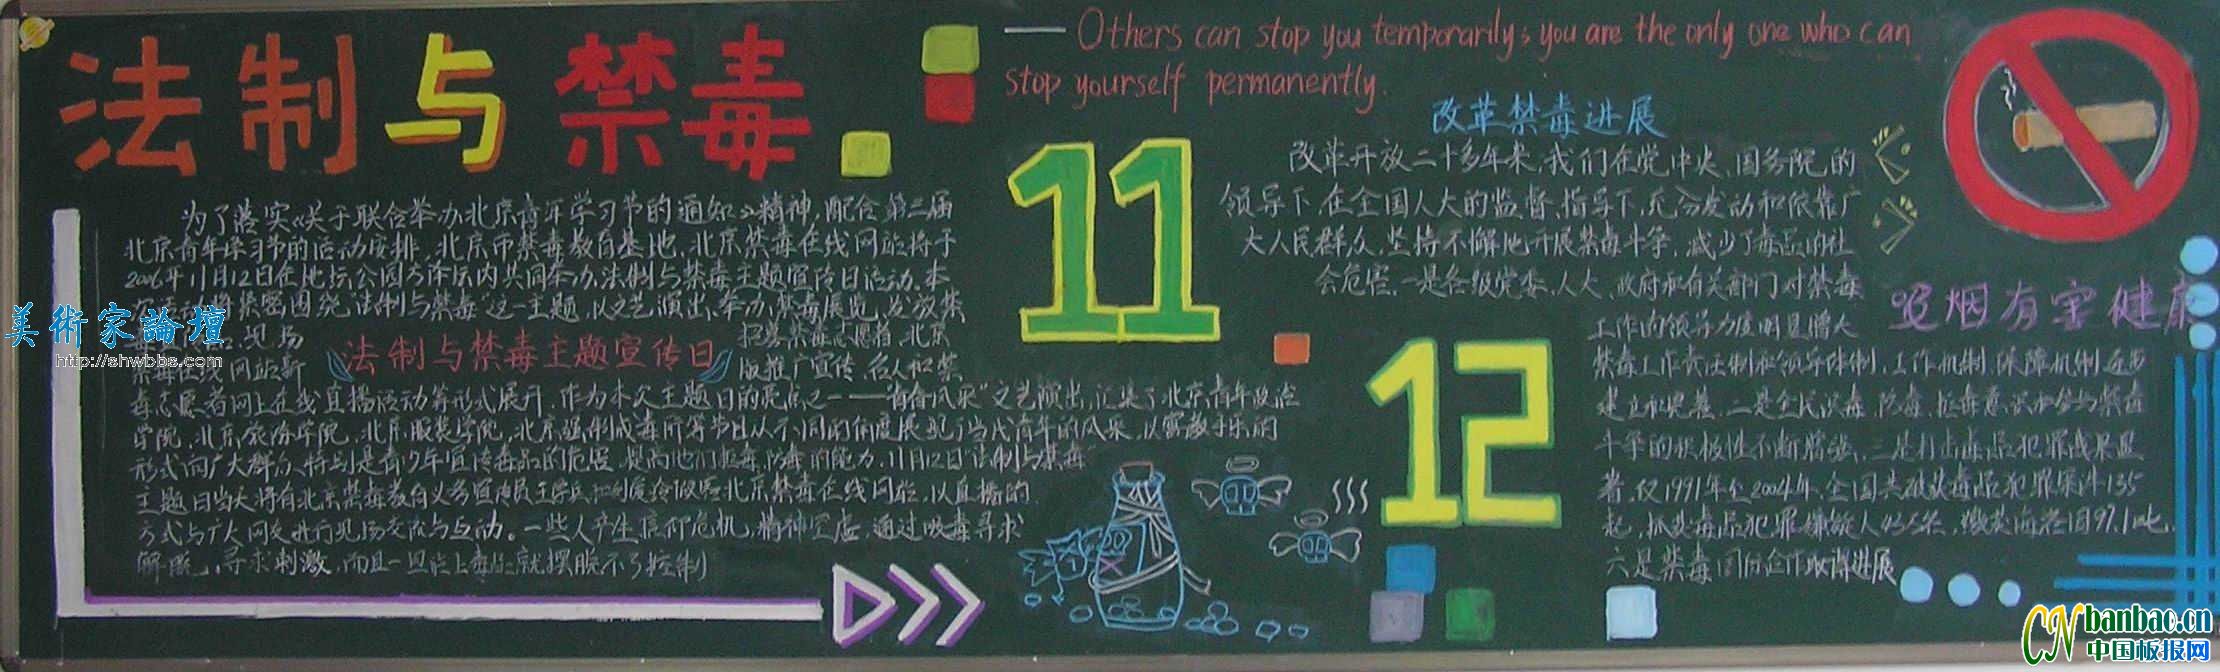 法制与禁毒
——Others can stop you temporarily; you are the only one who can
stop yourself permanently.
为了落实《关于联合举办北京青年学习节的通知》精神,配合第三届
北京青年学习节的活动安排,北京市禁毒教育基地、北京禁毒在线网站将于
2006年11月12日在地坛公园方泽坛内共同举办法制与禁毒主题宣传日活动.本
紧密围绕"法制与禁毒"这一主题,以文艺演出、举办禁毒展览、发放禁
现场
招募禁毒志愿者、北京
禁毒在线网站新
版推广宣传、名人和禁
法制与禁毒主题宣传日
毒志愿者网上在线直播活动等形式展开.作为本次主题日的亮点之一——"青春风采"文艺演出,汇集了北京青年政治
学院、北京旅游学院、北京服装学院、北京强制戒毒所等节目从不同的角度展现了当代青年的风采,以寓教于乐的
形式向广大群众、特别是青少年宣传毒品的危害,提高他们拒毒、防毒的能力.11月12日"法制与禁毒"
主题日当天将有北京禁毒教育义务宣传员王学兵和做客北京禁毒在线网站,以直播的
方式与广大网友进行现场交流与互动。一些人产生信仰危机,精神空虚,通过吸毒寻求
解脱,寻求刺激,而且一旦沾上毒品就摆脱不了控制
11
12
改革禁毒进展
改革开放二十多年来,我们在党中央、国务院的
领导下,在全国人大的监督、指导下,充分发动和依靠广
大人民群众,坚持不懈地开展禁毒斗争,减少了毒品的社
会危害.一是各级党委、人大、政府和有关部门对禁毒
工作的领导力度明显增大
禁毒工作责任制和领导体制,工作机制、保障机制逐步
建立和完善.二是全民识毒、防毒、拒毒意识和参与禁毒
斗争的积极性不断增强,三是打击毒品犯罪成果显
著.仅1991年至2004年,全国共破获毒品犯罪案件135
起,抓获毒品犯罪嫌疑人 名,缴获海洛因97.1吨.
六是禁毒国际合作取得进展
吸烟有害健康
美術家論壇
http://shwbbs.com
CN banbao.cn
中国板报网